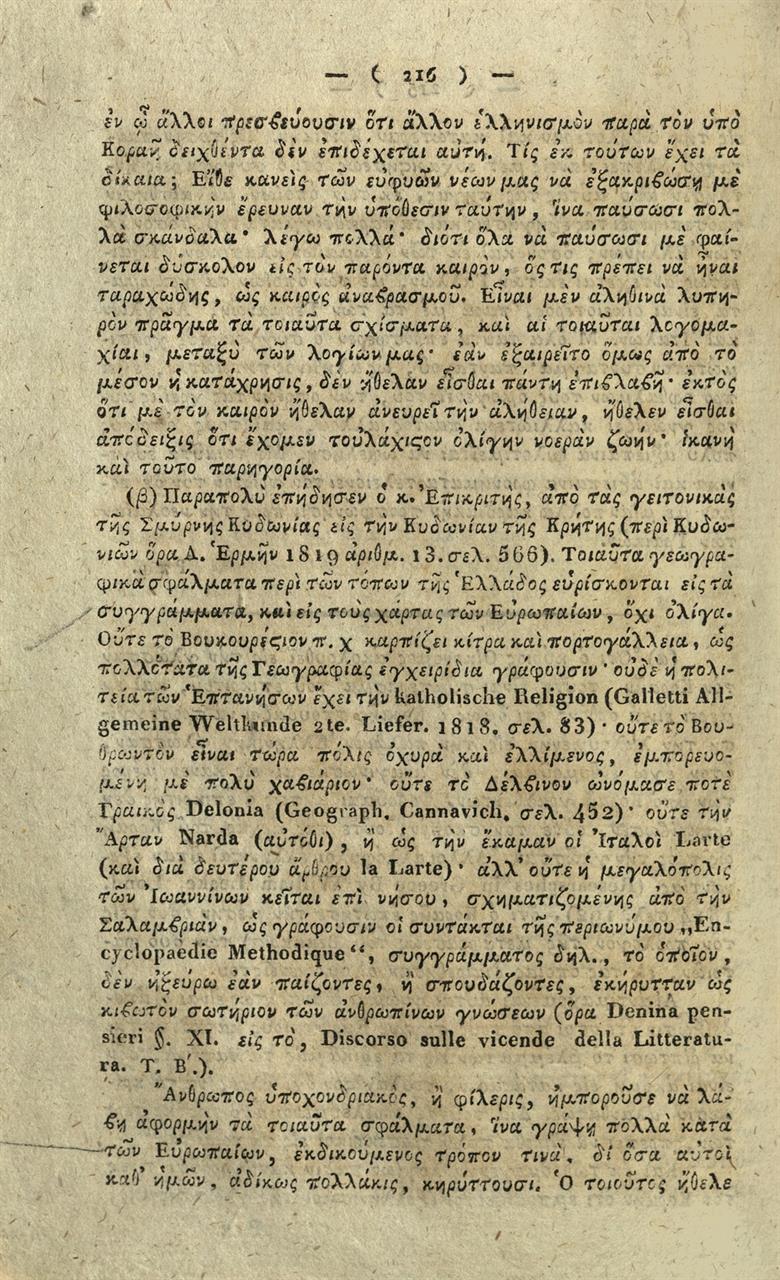 — ( 216 ) —
ἐν ᾧ ἄλλοι πρεσβεύουσιν ὅτι ἄλλον ἑλληνισμὸν παρὰ τὸν ὑπὸ
Κοραῆ δειχθέντα δὲν ἐπιδέχεται αὐτή. Τίς ἐκ τούτων ἔχει τὰ
δίκαια; Εἴθε κανεὶς τῶν εὐφυῶν νέων μας νὰ ἐξακριβώσῃ μὲ
φιλοσοφικὴν ἔρευναν τὴν ὑπόθεσιν ταύτην, ἵνα παύσωσι πολ-
λὰ σκάνδαλα· λέγω πολλά· διότι ὅλα νὰ παύσωσι μὲ φαί-
νεται δύσκολον εἰς τὸν παρόντα καιρὸν, ὅς τις πρέπει νὰ ἦναι
ταραχώδης, ὡς καιρὸς ἀναβρασμοῦ. Εἶναι μὲν ἀληθινὰ λυπη-
ρὸν πρᾶγμα τὰ τοιαῦτα σχίσματα, καὶ αἱ τοιαῦται λογομα-
χίαι, μεταξὺ τῶν λογίων μας· ἐὰν ἐξαιρεῖτο ὅμως ἀπὸ τὸ
μέσον ἡ κατάχρησις, δὲν ἤθελαν εἶσθαι πάντῃ ἐπιβλαβῆ· ἐκτὸς
ὅτι μὲ τὸν καιρὸν ἤθελαν ἀνευρεῖ τὴν ἀλήθειαν, ἤθελεν εἶσθαι
ἀπόδειξις ὅτι ἔχομεν τοὐλάχιςον ὀλίγην νοερὰν ζωήν· ἱκανὴ
καὶ τοῦτο παρηγορία.
(β) Παραπολὺ ἐπήδησεν ὁ κ. Ἐπικριτὴς, ἀπὸ τὰς γειτονικὰς
τῆς Σμύρνης Κυδωνίας εἰς τὴν Κυδωνίαν τῆς Κρήτης (περὶ Κυδω-
νιῶν ὅρα Λ. Ἑρμῆν 1819 ἀριθμ. 13. σελ. 566). Τοιαῦτα γεωγρα-
φικὰ σφάλματα περὶ τῶν τόπων τῆς Ἑλλάδος εὑρίσκονται εἰς τὰ
συγγράμματα, καὶ εἰς τοὺς χάρτας τῶν Εὐρωπαίων, ὄχι ὀλίγα.
Οὔτε τὸ Βουκουρέςιον π. χ καρπίζει κίτρα καὶ πορτογάλλεια, ὡς
πολλότατα τῆς Γεωγραφίας ἐγχειρίδια γράφουσιν· οὐδὲ ἡ πολι-
τεία τῶν Ἑπτανήσων ἔχει τὴν katholische Religion (Galletti All-
gemeine Weltkunde 2te. Liefer. 1818. σελ. 83)· οὔτε τὸ Βου-
θρωντὸν εἶναι τώρα πόλις ὀχυρὰ καὶ ἐλλίμενος, ἐμπορευο-
μένη μὲ πολὺ χαβιάριον· οὔτε τὸ Δέλβινον ὠνόμασε ποτὲ
Γραικὸς Delonia (Geograph. Cannavich. σελ. 452)· οὔτε τὴν
Ἄρταν Narda (αὐτόθι), ἢ ὡς τὴν ἔκαμαν οἱ Ἰταλοὶ Larte
(καὶ διὰ δευτέρου ἄρθρου la Larte)· ἀλλ' οὔτε ἡ μεγαλόπολις
τῶν Ἰωαννίνων κεῖται ἐπὶ νήσου, σχηματιζομένης ἀπὸ τὴν
Σαλαμβριὰν, ὡς γράφουσιν οἱ συντάκται τῆς περιωνύμου „En-
cyclopaedie Methodique“, συγγράμματος δηλ., τὸ ὁποῖον,
δὲν ἠξεύρω ἐὰν παίζοντες, ἢ σπουδάζοντες, ἐκήρυτταν ὡς
κιβωτὸν σωτήριον τῶν ἀνθρωπίνων γνώσεων (ὅρα Denina pen-
sieri §. XI. εἰς τὸ, Discorso sulle vicende della Litteratu-
ra. T. B'.).
Ἄνθρωπος ὑποχονδριακὸς, ἢ φίλερις, ἠμποροῦσε νὰ λά-
βῃ ἀφορμὴν τὰ τοιαῦτα σφάλματα, ἵνα γράψῃ πολλὰ κατὰ
τῶν Εὐρωπαίων, ἐκδικούμενος τρόπον τινὰ, δι' ὅσα αὐτοὶ
καθ' ἡμῶν, ἀδίκως πολλάκις, κηρύττουσι. Ὁ τοιοῦτος ἤθελε